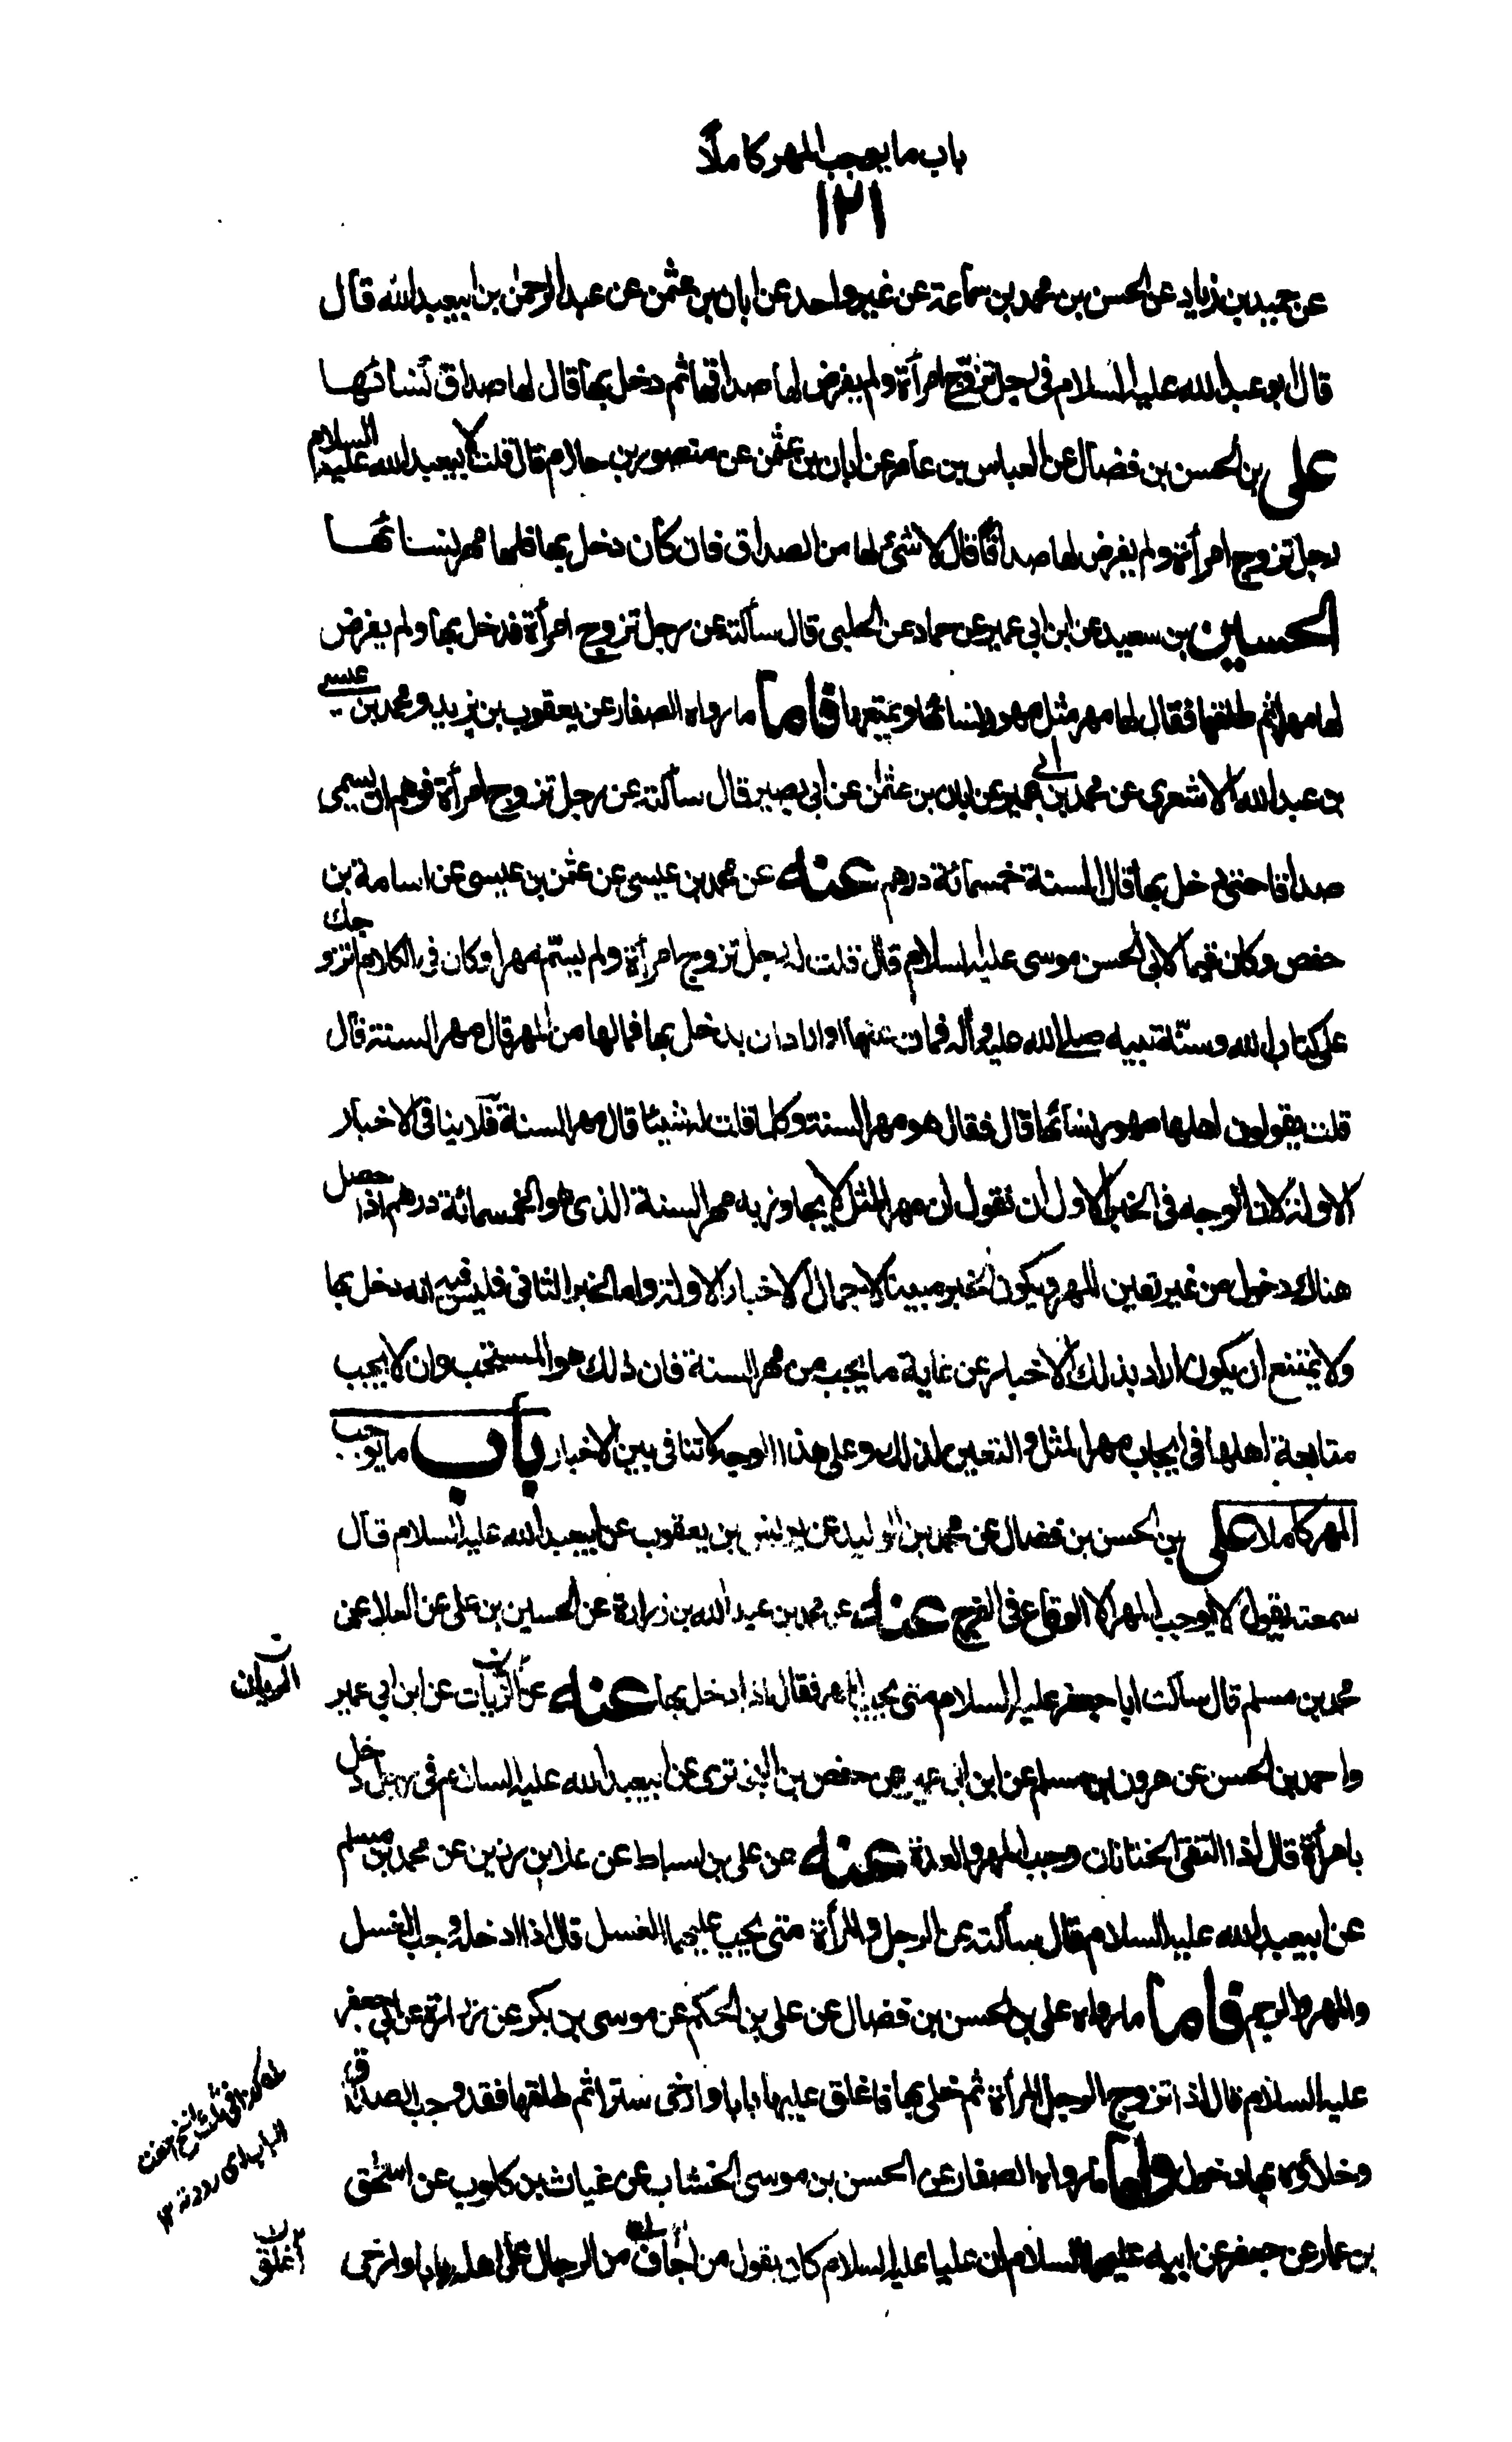 باب ما يوجب المهر كاملا
١٢١
عن حميد بن زياد عن الحسن بن محمد بن سماعة عن غير واحد عن ابان بن عثمن عن عبد الرحمن بن ابيعبد الله قال
قال ابو عبد الله عليه السلام في رجل تزوج امرأة ولم يفرض لها صداقها ثم دخل بها قال لها صداق نسائها
على بن الحسن بن فضال عن العباس بن عامر عن ابان بن عثمن عن منصور بن حازم قال قلت لابيعبد الله عليه السلام
رجل تزوج امرأة ولم يفرض لها صداقا قال لا شئ لها من الصداق فان كان دخل بها فلها مهر نسائها
الحسين بن سعيد عن ابن ابي عمير عن حماد عن الحلبي قال سألته عن رجل تزوج امرأة فدخل بها ولم يفرض
لها مهرا ثم طلقها فقال لها مهر مثل مهور نسائها ويمتعها فاما ما رواه الصفار عن يعقوب بن يزيد ومحمد بن عيسى
بن عبد الله الاشعري عن محمد بن ابي عمير عن ابان بن عثمن عن ابي بصير قال سألته عن رجل تزوج امرأة فوهم ان يسمى
صداقا حتى دخل بها قال السنة خمسمائة درهم عنه عن محمد بن عيسى عن عثمن بن عيسى عن اسامة بن
حفص وكان قيما لابي الحسن موسى عليه السلام قال قلت له رجل تزوج امرأة ولم يسم مهرا وكان في الكلام اتزوجك
على كتاب الله وسنة نبيه صلى الله عليه وآله فمات عنها او اراد ان يدخل بها فما لها من المهر قال مهر السنة قال
قلت يقولون اهلها مهور نسائها قال فقال هو مهر السنة وكلما قلت له شيئا قال مهر السنة فلا ينافي الاخبار
الاولة لان الوجه في الخبر الاول ان نقول ان مهر المثل لا يجاوز به مهر السنة الذي هو الخمسمائة درهم اذا حصل
هناك دخول من غير تعيين المهر ويكون الخبر مبينا لاجمال الاخبار الاولة واما الخبر الثاني فليس فيه انه دخل بها
ولا يمتنع ان يكون اراد بذلك الاخبار عن غاية ما يجب من مهر السنة فان ذلك هو المستحب وان لا يجب
متابعة اهلها في ايجاب مهر المثل والتعيين لذلك وعلى هذا الوجه لا تنافي بين الاخبار باب ما يوجب
المهر كاملا على بن الحسن بن فضال عن محمد بن الوليد عن يونس بن يعقوب عن ابيعبد الله عليه السلام قال
سمعته يقول لا يوجب المهر الا الوقاع في الفرج عنه عن محمد بن عبد الله بن زرارة عن الحسين بن علي عن العلا عن
محمد بن مسلم قال سألت ابا جعفر عليه السلام متى يجب المهر فقال اذا دخل بها عنه عن الزيات عن ابن ابي عمير
الريان
واحمد بن الحسن عن هرون بن مسلم عن ابن ابي عمير عن حفص بن البختري عن ابيعبد الله عليه السلام في رجل دخل
بامرأة قال اذا التقى الختانان وجب المهر والعدة عنه عن علي بن اسباط عن علا بن رزين عن محمد بن مسلم
عن ابيعبد الله عليه السلام قال سألته عن الرجل والمرأة متى يجب عليهما الغسل قال اذا ادخله وجب الغسل
والمهر والرجم فاما ما رواه علي بن الحسن بن فضال عن علي بن الحكم عن موسى بن بكر عن زرارة عن ابي جعفر
عليه السلام قال اذا تزوج الرجل المرأة ثم خلى بها فاغلق عليها بابا او ارخى سترا ثم طلقها فقد وجب الصداق
وخلاؤه بها دخول واما ما رواه الصفار عن الحسن بن موسى الخشاب عن غياث بن كلوب عن اسحق
بن عمار عن جعفر عن ابيه عليهما السلام ان عليا عليه السلام كان يقول من اجاف من الرجال على اهله بابا او ارخى
أغلق